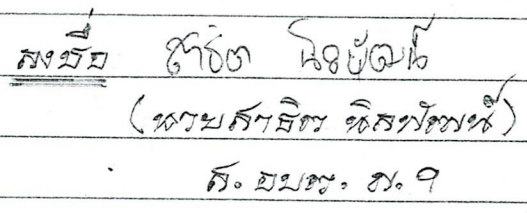 ลงชื่อ สาธิต
(นายสาธิต นิลพัฒน์)
ส. อบต. ม. 1